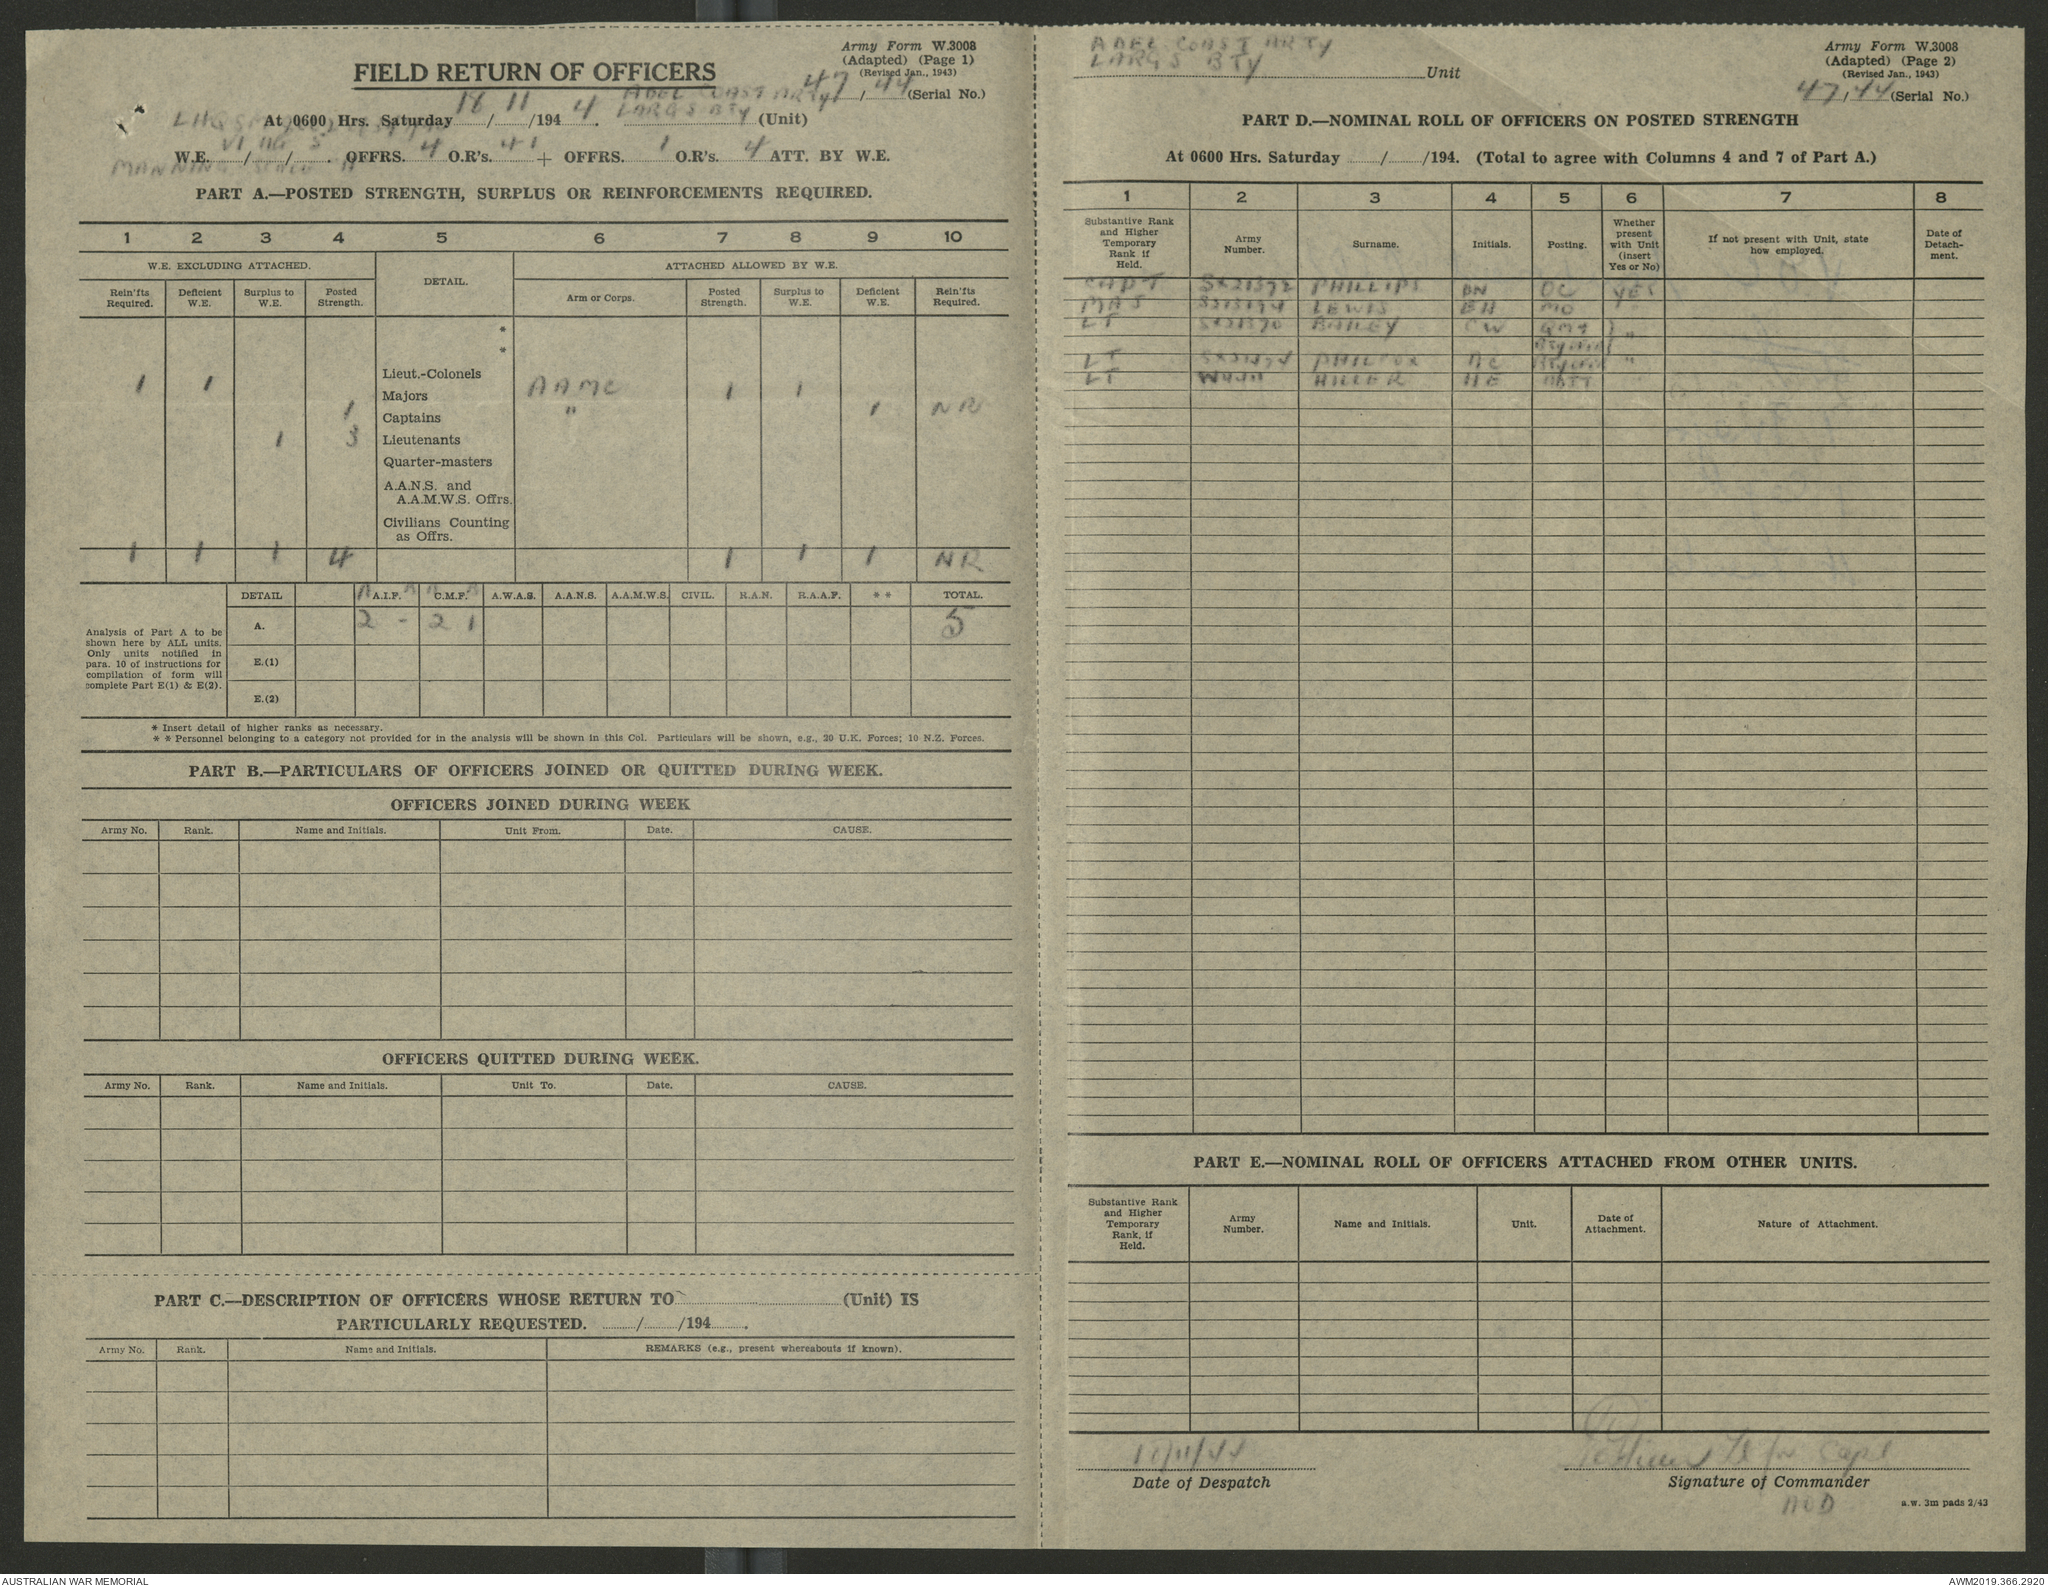 Army Form W.3008
(Adapted) (Page 1)
(Revised Jan., 1943)
47 / 44 (Serial No.)
FIELD RETURN OF OFFICERS
ADEL COAST ARTY
At 0600 Hrs. Saturday 18 / 11 /194 4. LARGS BTY (Unit)
W.E. VI / IIG / 5. OFFRS. 4 O.R's. 41 + OFFRS. 1 O.R's. 4 ATT. BY W.E.
MANNING
PART A.—POSTED STRENGTH, SURPLUS OR REINFORCEMENTS REQUIRED.
1 2 3 4 5 6 7 8 9 10
W.E. EXCLUDING ATTACHED. DETAIL. ATTACHED ALLOWED BY W.E.
Rein'fts Required. Deficient W.E. Surplus to W.E. Posted Strength. Arm or Corps. Posted Strength. Surplus to W.E. Deficient W.E. Rein'fts Required.
*
*
Lieut.-Colonels
1 1 Majors AAMC 1 1
1 Captains " 1 NR
1 3 Lieutenants
Quarter-masters
A.A.N.S. and
A.A.M.W.S. Offrs.
Civilians Counting
as Offrs.
1 1 1 4 1 1 1 NR
DETAIL A.I.F. C.M.F. A.W.A.S. A.A.N.S. A.A.M.W.S. CIVIL. R.A.N. R.A.A.F. * * TOTAL.
A. 2 - 2 1 5
E.(1)
E.(2)
Analysis of Part A to be
shown here by ALL units.
Only units notified in
para. 10 of instructions for
compilation of form will
complete Part E(1) & E(2).
* Insert detail of higher ranks as necessary.
* * Personnel belonging to a category not provided for in the analysis will be shown in this Col. Particulars will be shown, e.g., 20 U.K. Forces; 10 N.Z. Forces.
PART B.—PARTICULARS OF OFFICERS JOINED OR QUITTED DURING WEEK.
OFFICERS JOINED DURING WEEK
Army No. Rank. Name and Initials. Unit From. Date. CAUSE.
OFFICERS QUITTED DURING WEEK.
Army No. Rank. Name and Initials. Unit To. Date. CAUSE.
PART C.—DESCRIPTION OF OFFICERS WHOSE RETURN TO (Unit) IS
PARTICULARLY REQUESTED. / /194 .
Army No. Rank. Name and Initials. REMARKS (e.g., present whereabouts if known).
ADEL COAST ARTY
LARGS BTY Unit
Army Form W.3008
(Adapted) (Page 2)
(Revised Jan., 1943)
47 / 44 (Serial No.)
PART D.—NOMINAL ROLL OF OFFICERS ON POSTED STRENGTH
At 0600 Hrs. Saturday / /194. (Total to agree with Columns 4 and 7 of Part A.)
1 2 3 4 5 6 7 8
Substantive Rank and Higher Temporary Rank if Held. Army Number. Surname. Initials. Posting. Whether present with Unit (insert Yes or No) If not present with Unit, state how employed. Date of Detach-ment.
CAPT SX21372 PHILLIPS BN OC YES
MAJ LEWIS EH MO
LT BAILEY CW "
LT PHILPOX AC "
LT HILLER HE
PART E.—NOMINAL ROLL OF OFFICERS ATTACHED FROM OTHER UNITS.
Substantive Rank and Higher Temporary Rank, if Held. Army Number. Name and Initials. Unit. Date of Attachment. Nature of Attachment.
Lt for Capt
Date of Despatch
Signature of Commander
a.w. 3m pads 2/43
AUSTRALIAN WAR MEMORIAL
AWM2019.366.2920